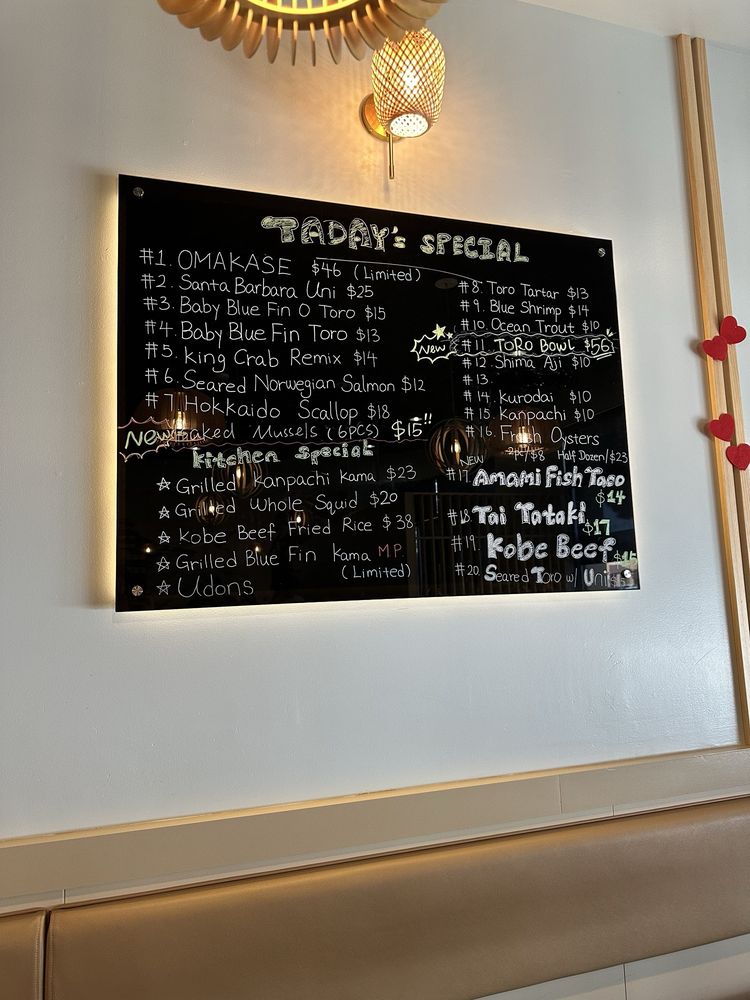 TADAY's SPECIAL
#1. OMAKASE $46 (Limited)
#2. Santa Barbara Uni $25
#3. Baby Blue Fin O Toro $15
#4. Baby Blue Fin Toro $13
#5. King Crab Remix $14
#6. Seared Norwegian Salmon $12
#7. Hokkaido Scallop $18
New Baked Mussels (6pcs) $15!!
Kitchen Special
☆ Grilled Kanpachi Kama $23
☆ Grilled Whole Squid $20
☆ Kobe Beef Fried Rice $38
☆ Grilled Blue Fin Kama M.P.
(Limited)
☆ Udons
#8. Toro Tartar $13
#9. Blue Shrimp $14
#10. Ocean Trout $10
New #11. TORO BOWL $56
#12. Shima Aji $10
#13.
#14. Kurodai $10
#15. Kanpachi $10
#16. Fresh Oysters
2pc/$8 Half Dozen/$23
NEW
#17. Amami Fish Taco
$14
#18. Tai Tataki
$17
#19. Kobe Beef
#20. Seared Toro w/ Uni